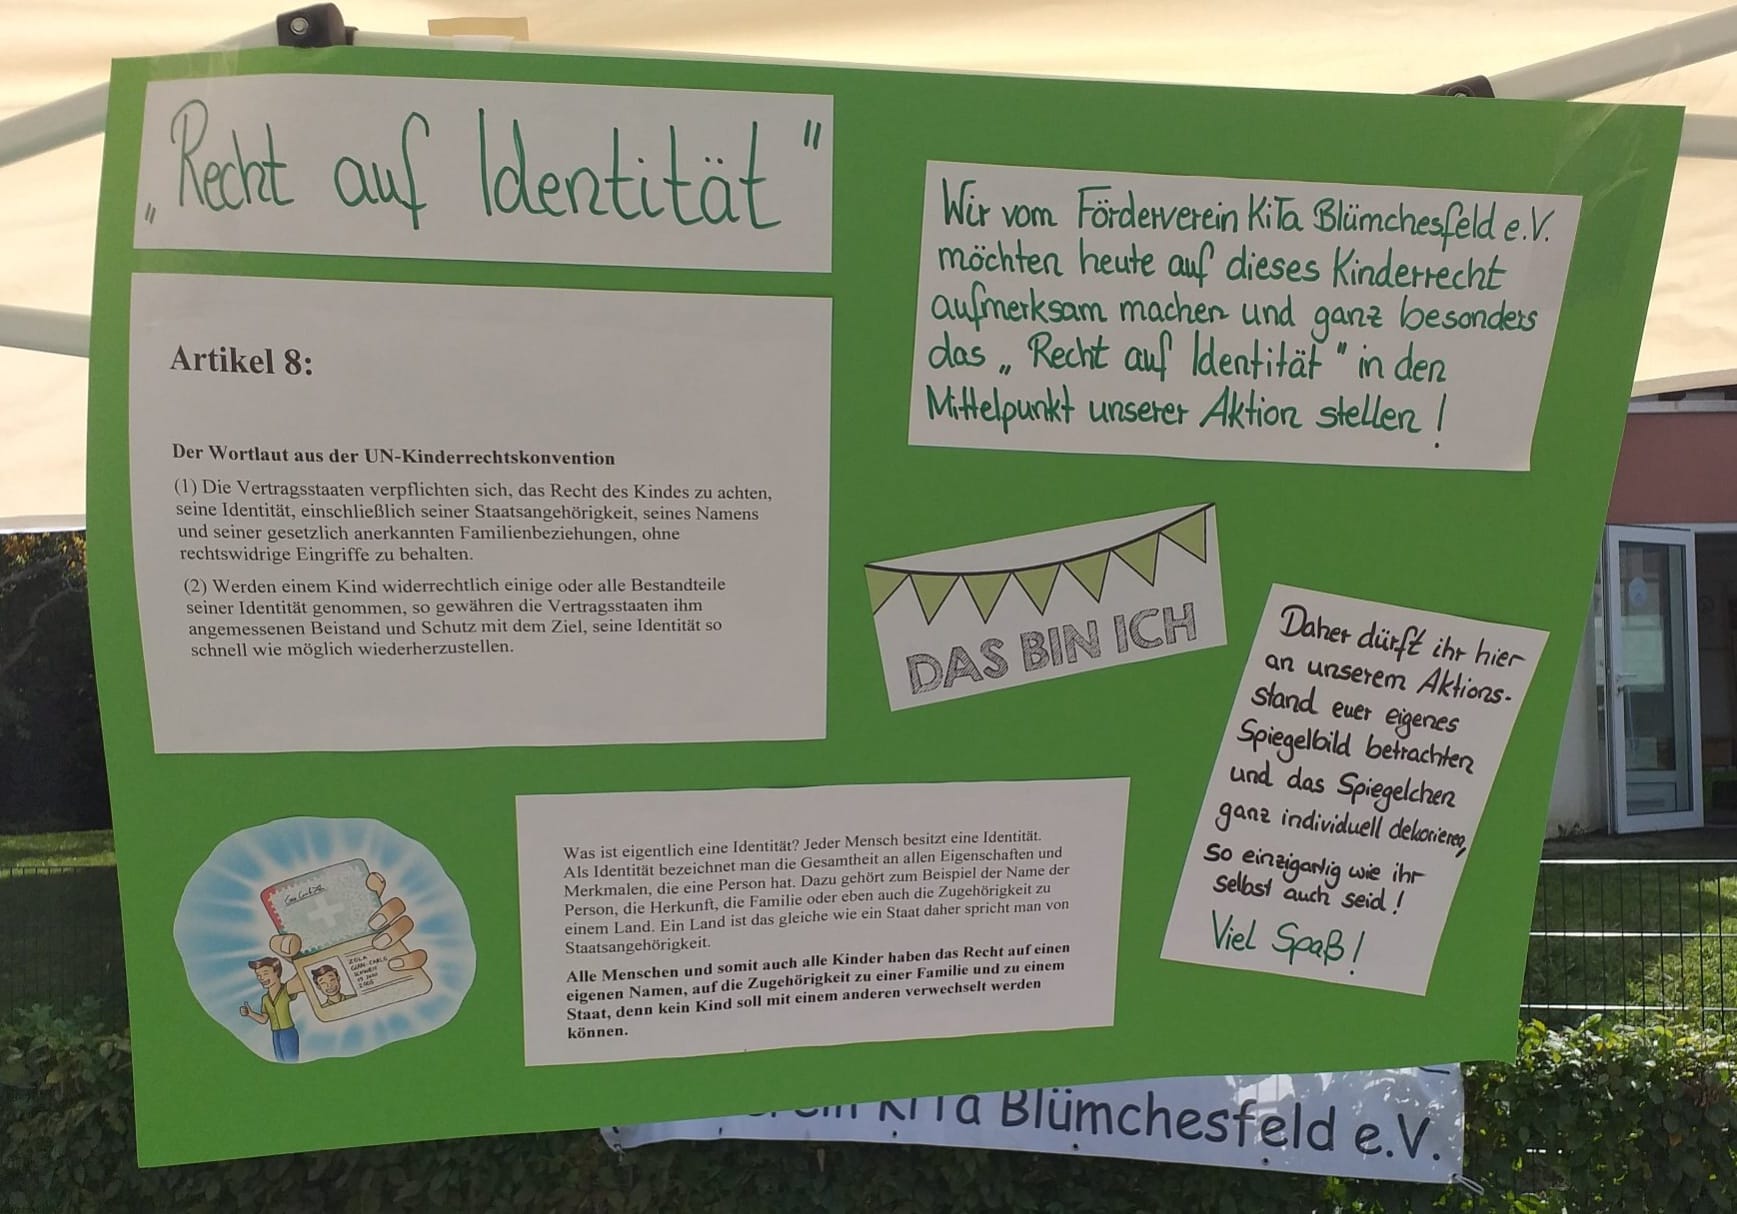 „Recht auf Identität"
Artikel 8:
Der Wortlaut aus der UN-Kinderrechtskonvention
(1) Die Vertragsstaaten verpflichten sich, das Recht des Kindes zu achten,
seine Identität, einschließlich seiner Staatsangehörigkeit, seines Namens
und seiner gesetzlich anerkannten Familienbeziehungen, ohne
rechtswidrige Eingriffe zu behalten.
(2) Werden einem Kind widerrechtlich einige oder alle Bestandteile
seiner Identität genommen, so gewähren die Vertragsstaaten ihm
angemessenen Beistand und Schutz mit dem Ziel, seine Identität so
schnell wie möglich wiederherzustellen.
Wir vom Förderverein KiTa Blümchesfeld e.V.
möchten heute auf dieses Kinderrecht
aufmerksam machen und ganz besonders
das „Recht auf Identität" in den
Mittelpunkt unserer Aktion stellen!
DAS BIN ICH
Daher dürft ihr hier
an unserem Aktions-
stand euer eigenes
Spiegelbild betrachten
und das Spiegelchen
ganz individuell dekorieren,
so einzigartig wie ihr
selbst auch seid!
Viel Spaß!
Was ist eigentlich eine Identität? Jeder Mensch besitzt eine Identität.
Als Identität bezeichnet man die Gesamtheit an allen Eigenschaften und
Merkmalen, die eine Person hat. Dazu gehört zum Beispiel der Name der
Person, die Herkunft, die Familie oder eben auch die Zugehörigkeit zu
einem Land. Ein Land ist das gleiche wie ein Staat daher spricht man von
Staatsangehörigkeit.
Alle Menschen und somit auch alle Kinder haben das Recht auf einen
eigenen Namen, auf die Zugehörigkeit zu einer Familie und zu einem
Staat, denn kein Kind soll mit einem anderen verwechselt werden
können.
KiTa Blümchesfeld e.V.